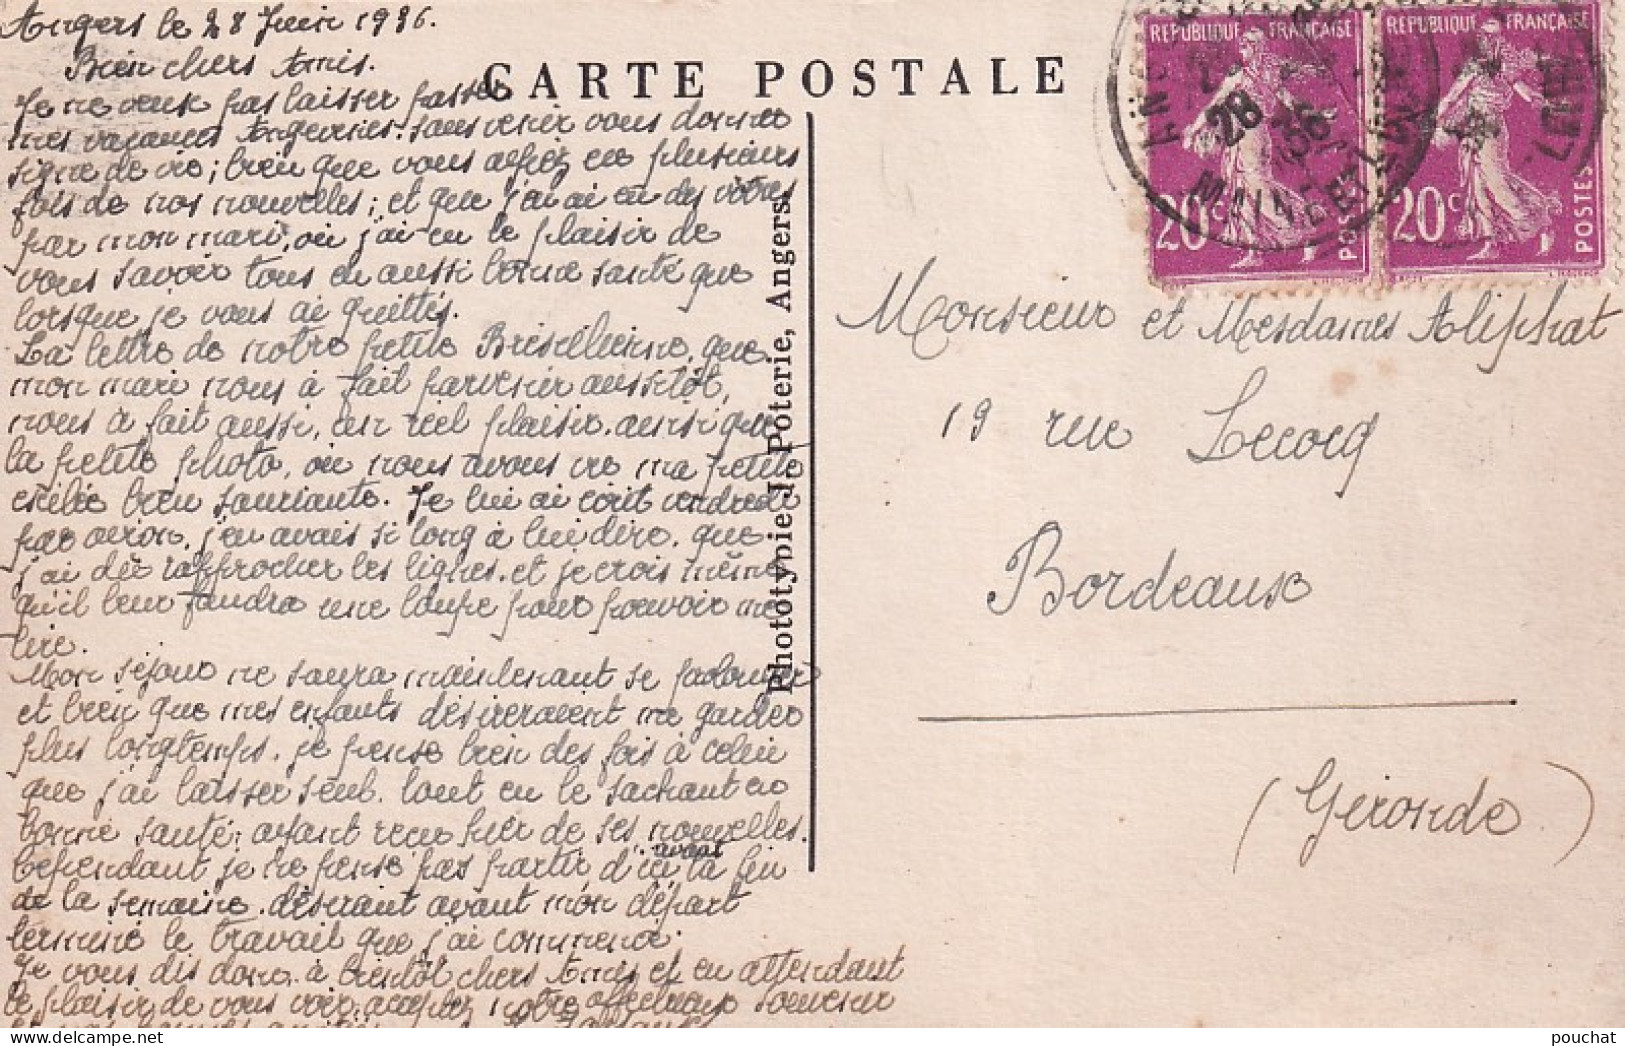 Angers le 28 Juin 1936.
Bien chers Amis.
CARTE POSTALE
Je ne veux pas laisser passer
mes vacances Angevines. sans venir vous donner
signe de vie; bien que vous ayiez eu plusieurs
fois de nos nouvelles; et que j'ai ai eu des vôtres
par mon mari, où j'ai eu le plaisir de
vous savoir tous en aussi bonne santé que
lorsque je vous ai quittés.
La lettre de notre petite Brésilienne, que
mon mari nous à fait parvenir aussitôt,
nous à fait aussi, un réel plaisir. ainsi que
la petite photo, où nous avons vu ma petite
exilée bien souriante. Je lui ai écrit vendredi
par avion, j'en avais si long à lui dire. que
j'ai dû rapprocher les lignes. et je crois même
qu'il leur faudra une loupe pour pouvoir me
lire.
Mon séjour ne saura maintenant se prolonger
et bien que mes enfants désireraient me garder
plus longtemps. je pense bien des fois à celui
que j'ai laisser seul. tout en le sachant en
bonne santé; ayant reçu hier de ses nouvelles.
Cependant je ne pense pas partir d'ici avant la fin
de la semaine. désirant avant mon départ
terminé le travail que j'ai commencé.
Je vous dis donc à bientôt chers Amis et en attendant
le plaisir de vous voir, acceptez notre affectueux souvenir
Phototypie J. Poterie, Angers.
REPUBLIQUE FRANÇAISE
20c
POSTES
REPUBLIQUE FRANÇAISE
20c
POSTES
28
36
MAINE ET LOIRE
Monsieur et Mesdames Aliphat
19 rue Lecocq
Bordeaux
(Gironde)
pouchat